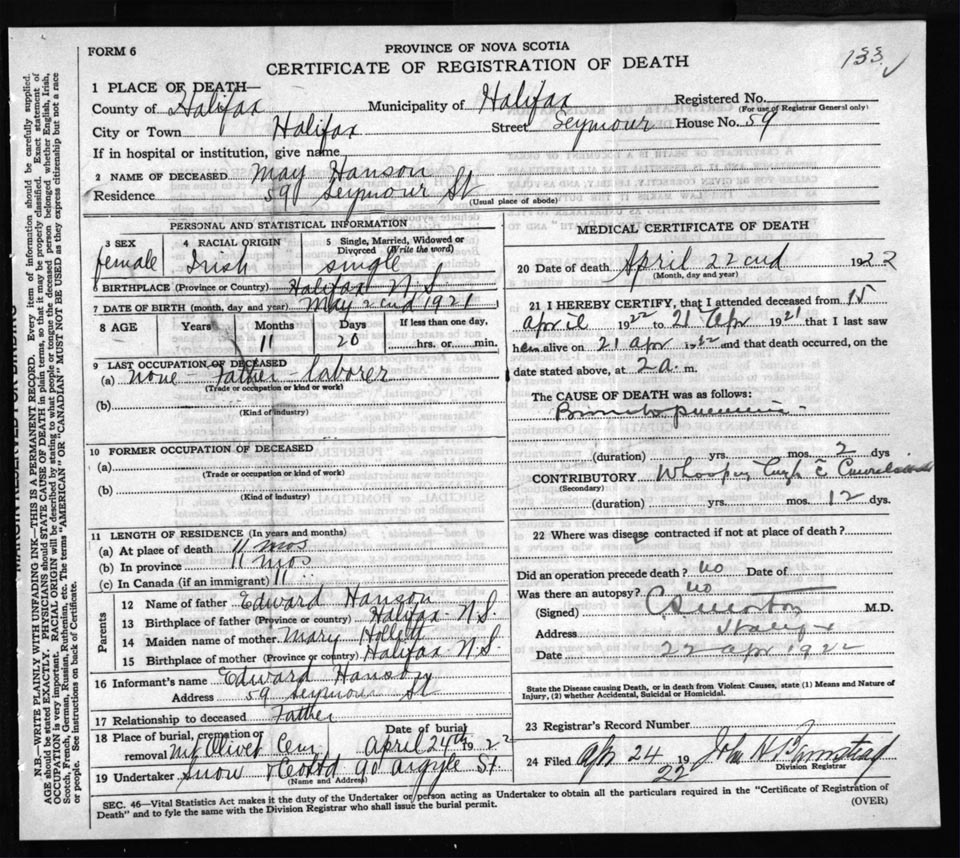 FORM 6
PROVINCE OF NOVA SCOTIA
CERTIFICATE OF REGISTRATION OF DEATH
133
1 PLACE OF DEATH—
County of Halifax Municipality of Halifax Registered No.
(For use of Registrar General only)
City or Town Halifax Street Seymour House No. 59
If in hospital or institution, give name
2 NAME OF DECEASED May Hanson
Residence 59 Seymour St
(Usual place of abode)
PERSONAL AND STATISTICAL INFORMATION
3 SEX 4 RACIAL ORIGIN 5 Single, Married, Widowed or Divorced (Write the word)
female Irish single
6 BIRTHPLACE (Province or Country) Halifax N.S.
7 DATE OF BIRTH (month, day and year) May 2cnd 1921
8 AGE Years Months Days If less than one day,
11 20 hrs. or min.
9 LAST OCCUPATION OF DECEASED
(a) none - father - laborer
(Trade or occupation or kind of work)
(b)
(Kind of industry)
10 FORMER OCCUPATION OF DECEASED
(a)
(Trade or occupation or kind of work)
(b)
(Kind of industry)
11 LENGTH OF RESIDENCE (In years and months)
(a) At place of death 11 mos
(b) In province 11 mos
(c) In Canada (if an immigrant) 11
Parents
12 Name of father Edward Hanson
13 Birthplace of father (Province or country) Halifax N.S.
14 Maiden name of mother Mary
15 Birthplace of mother (Province or country) Halifax N.S.
16 Informant's name Edward Hanson
Address 59 Seymour St
17 Relationship to deceased Father
18 Place of burial, cremation or removal Mt Olivet Cem Date of burial April 24th 1922
19 Undertaker Snow & Co Ltd 90 Argyle St.
(Name and Address)
MEDICAL CERTIFICATE OF DEATH
20 Date of death April 22cnd 1922
(Month, day and year)
21 I HEREBY CERTIFY, that I attended deceased from 15
April 1922 to 21 Apr 1921 that I last saw
her alive on 21 apr 1922 and that death occurred, on the
date stated above, at 2 a. m.
The CAUSE OF DEATH was as follows:
Broncho pneumonia
(duration) yrs. mos. 2 dys
CONTRIBUTORY Whooping Cough c̄
(Secondary)
(duration) yrs. mos. 12 dys.
22 Where was disease contracted if not at place of death?
Did an operation precede death? no Date of
Was there an autopsy? no
(Signed) M.D.
Address Halifax
Date 22 apr 1922
State the Disease causing Death, or in death from Violent Causes, state (1) Means and Nature of Injury, (2) whether Accidental, Suicidal or Homicidal.
23 Registrar's Record Number
24 Filed Apr 24 1922 John H
Division Registrar
SEC. 46—Vital Statistics Act makes it the duty of the Undertaker or person acting as Undertaker to obtain all the particulars required in the "Certificate of Registration of
Death" and to fyle the same with the Division Registrar who shall issue the burial permit.
(OVER)
MARGIN RESERVED FOR BINDING
N.B.—WRITE PLAINLY WITH UNFADING INK—THIS IS A PERMANENT RECORD. Every item of information should be carefully supplied.
AGE should be stated EXACTLY. PHYSICIANS should STATE CAUSE OF DEATH in plain terms, so that it may be properly classified. Exact statement of
OCCUPATION is very important. RACIAL ORIGIN will be described by stating to what people or tongue the deceased person belonged whether English, Irish,
Scotch, French, German, Russian, Ruthenian, etc. The terms "AMERICAN" OR "CANADIAN" MUST NOT BE USED as they express citizenship but not a race
or people. See instructions on back of Certificate.